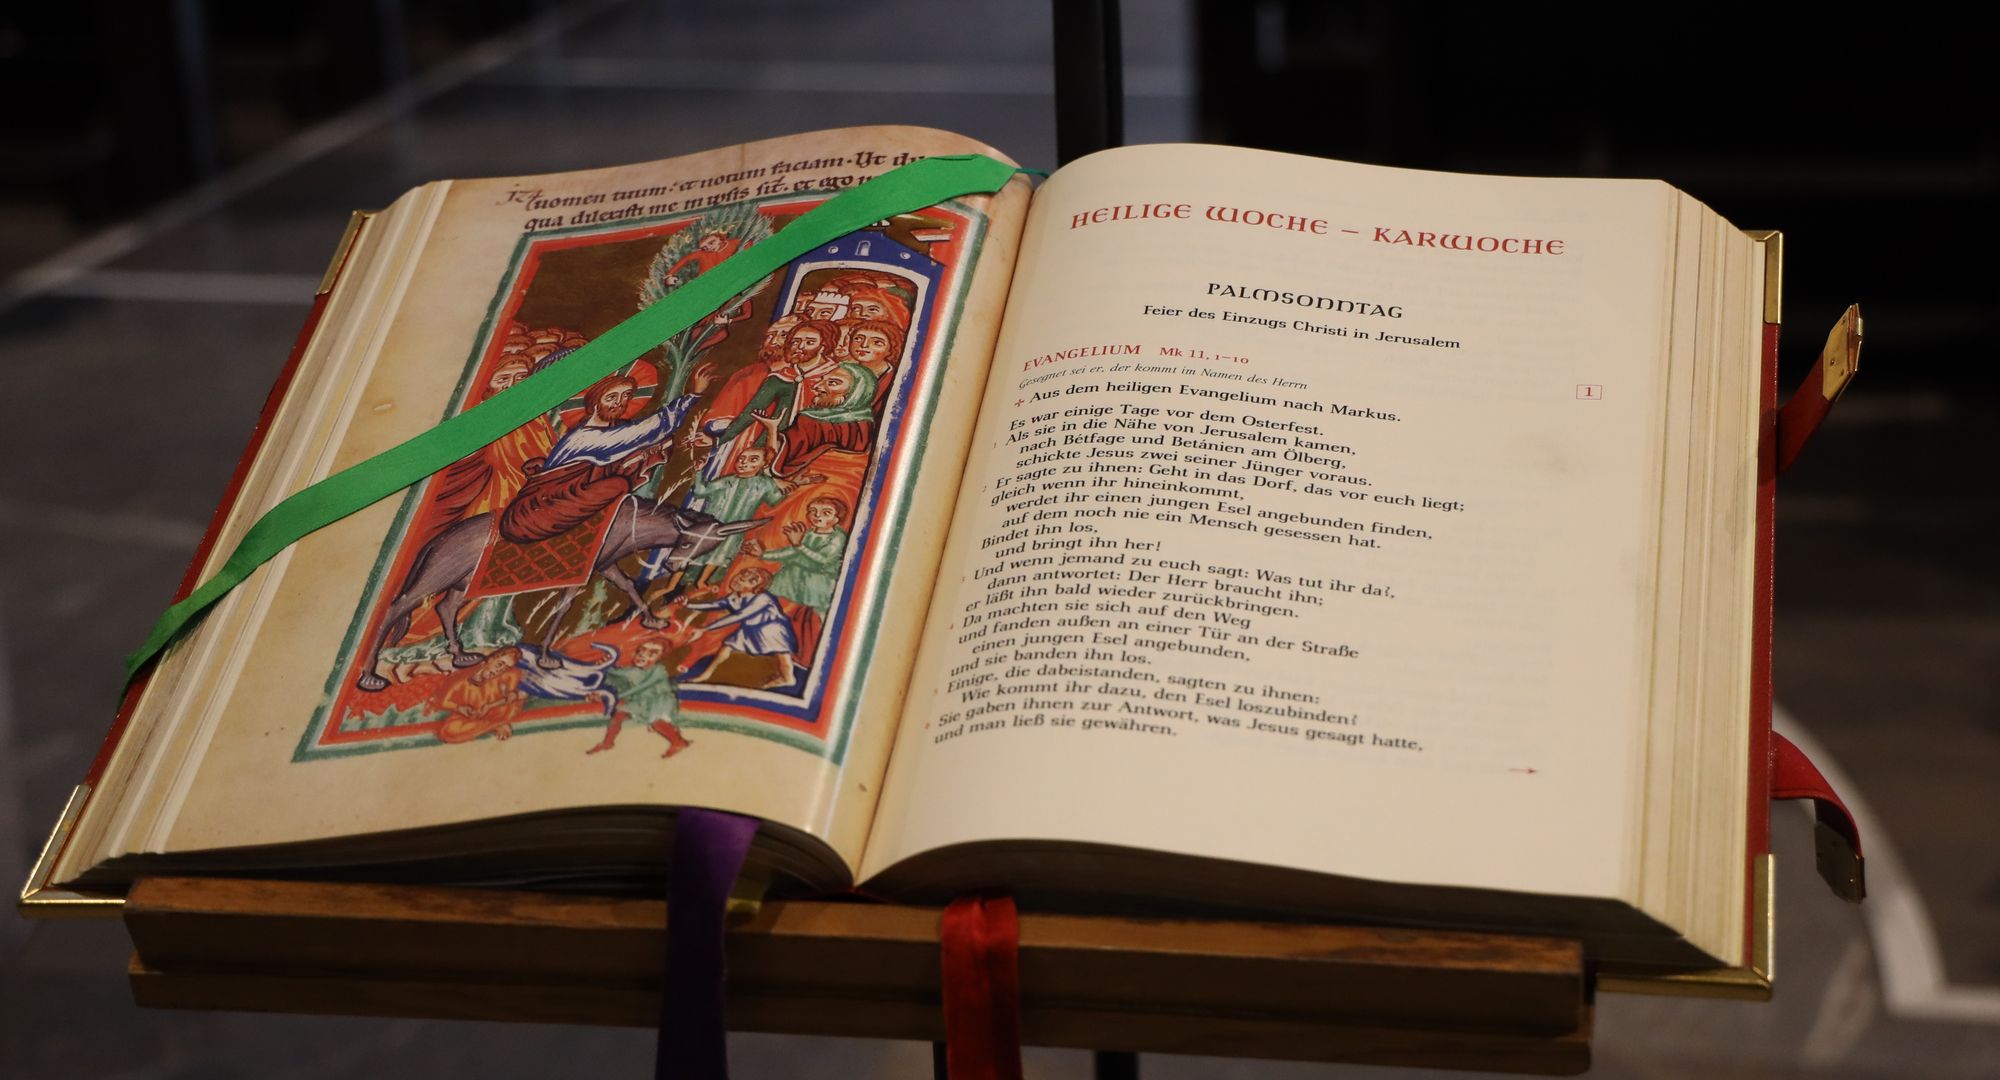 nomen tuum: et notum faciam. Ut
qua dilexisti me in ipsis sit. et ego
HEILIGE WOCHE – KARWOCHE
PALMSONNTAG
Feier des Einzugs Christi in Jerusalem
EVANGELIUM Mk 11, 1–10
Gesegnet sei er, der kommt im Namen des Herrn
1
✢ Aus dem heiligen Evangelium nach Markus.
Es war einige Tage vor dem Osterfest.
1 Als sie in die Nähe von Jerusalem kamen,
nach Bétfage und Betánien am Ölberg,
schickte Jesus zwei seiner Jünger voraus.
2 Er sagte zu ihnen: Geht in das Dorf, das vor euch liegt;
gleich wenn ihr hineinkommt,
werdet ihr einen jungen Esel angebunden finden,
auf dem noch nie ein Mensch gesessen hat.
Bindet ihn los,
und bringt ihn her!
3 Und wenn jemand zu euch sagt: Was tut ihr da?,
dann antwortet: Der Herr braucht ihn;
er läßt ihn bald wieder zurückbringen.
4 Da machten sie sich auf den Weg
und fanden außen an einer Tür an der Straße
einen jungen Esel angebunden,
und sie banden ihn los.
5 Einige, die dabeistanden, sagten zu ihnen:
Wie kommt ihr dazu, den Esel loszubinden?
6 Sie gaben ihnen zur Antwort, was Jesus gesagt hatte,
und man ließ sie gewähren.
→